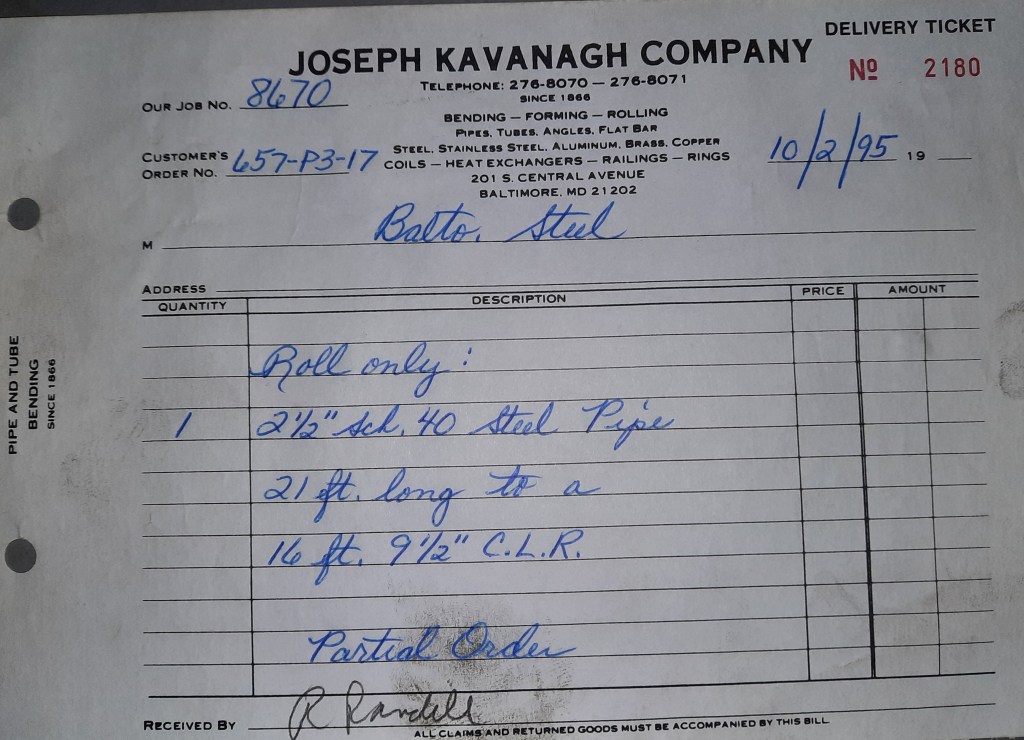 DELIVERY TICKET
JOSEPH KAVANAGH COMPANY
Nº 2180
TELEPHONE: 276-8070 — 276-8071
SINCE 1866
OUR JOB NO. 8670
BENDING — FORMING — ROLLING
PIPES, TUBES, ANGLES, FLAT BAR
STEEL, STAINLESS STEEL, ALUMINUM, BRASS, COPPER
CUSTOMER'S
ORDER NO. 657-P3-17
COILS — HEAT EXCHANGERS — RAILINGS — RINGS
10/2/95 19
201 S. CENTRAL AVENUE
BALTIMORE, MD 21202
M Balto. Steel
ADDRESS
QUANTITY DESCRIPTION PRICE AMOUNT
Roll only:
1 2 1/2" sch. 40 Steel Pipe
21 ft. long to a
16 ft. 9 1/2" C.L.R.
Partial Order
RECEIVED BY R Randell
ALL CLAIMS AND RETURNED GOODS MUST BE ACCOMPANIED BY THIS BILL
PIPE AND TUBE
BENDING
SINCE 1866